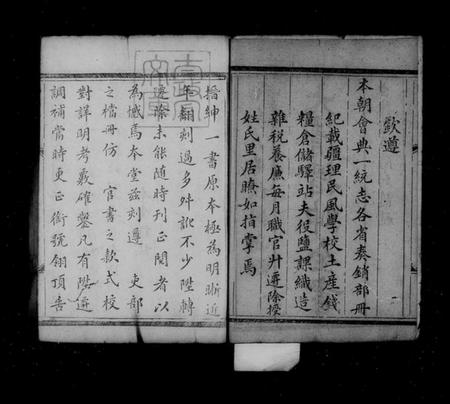 欽遵
本朝會典一統志各省奏銷部冊
紀載疆理民風學校土產錢
糧倉儲驛站夫役鹽課織造
雜稅養廉每月職官升遷除授
姓氏里居瞭如指掌焉
一
搢紳一書原本極為明晰近
年翻刻過多舛訛不少陞轉
遷除未能隨時刊正閱者以
為憾焉本堂兹刻遵　吏部
之檔冊仿　官書之款式校
對詳明考覈確鑿凡有陞遷
調補當時更正銜號翎頂告